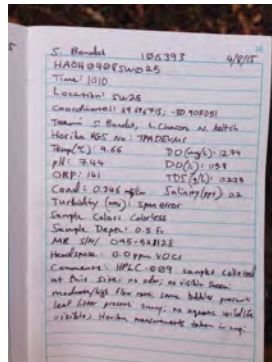 S. Bandot 106393 4/8/15
HA04040815W025
Time: 1010
Location: SW25
Coordinates:
Team: S. Bandot, L. Chason N. Keitch
Horiba KGS No:
Temp(°C): 9.66 DO (mg/L): 12.74
pH: 7.44 DO(%):
ORP: 141 TDS(g/L): 0.228
Cond: 0.346 Salinity (ppt): 0.2
Turbidity (ntu): Span error
Sample Color: Colorless
Sample Depth: 0.5 ft
MR S/N/ 095-528128
Headspace: 0.0 ppm VOCs
Comments: HPLC-009 sample collected
at this site; no odor, no visible sheen
medium/high flow rate, some bubbles present
leaf litter present, sunny, no aquatic wildlife
visible, Horiba measurements taken in